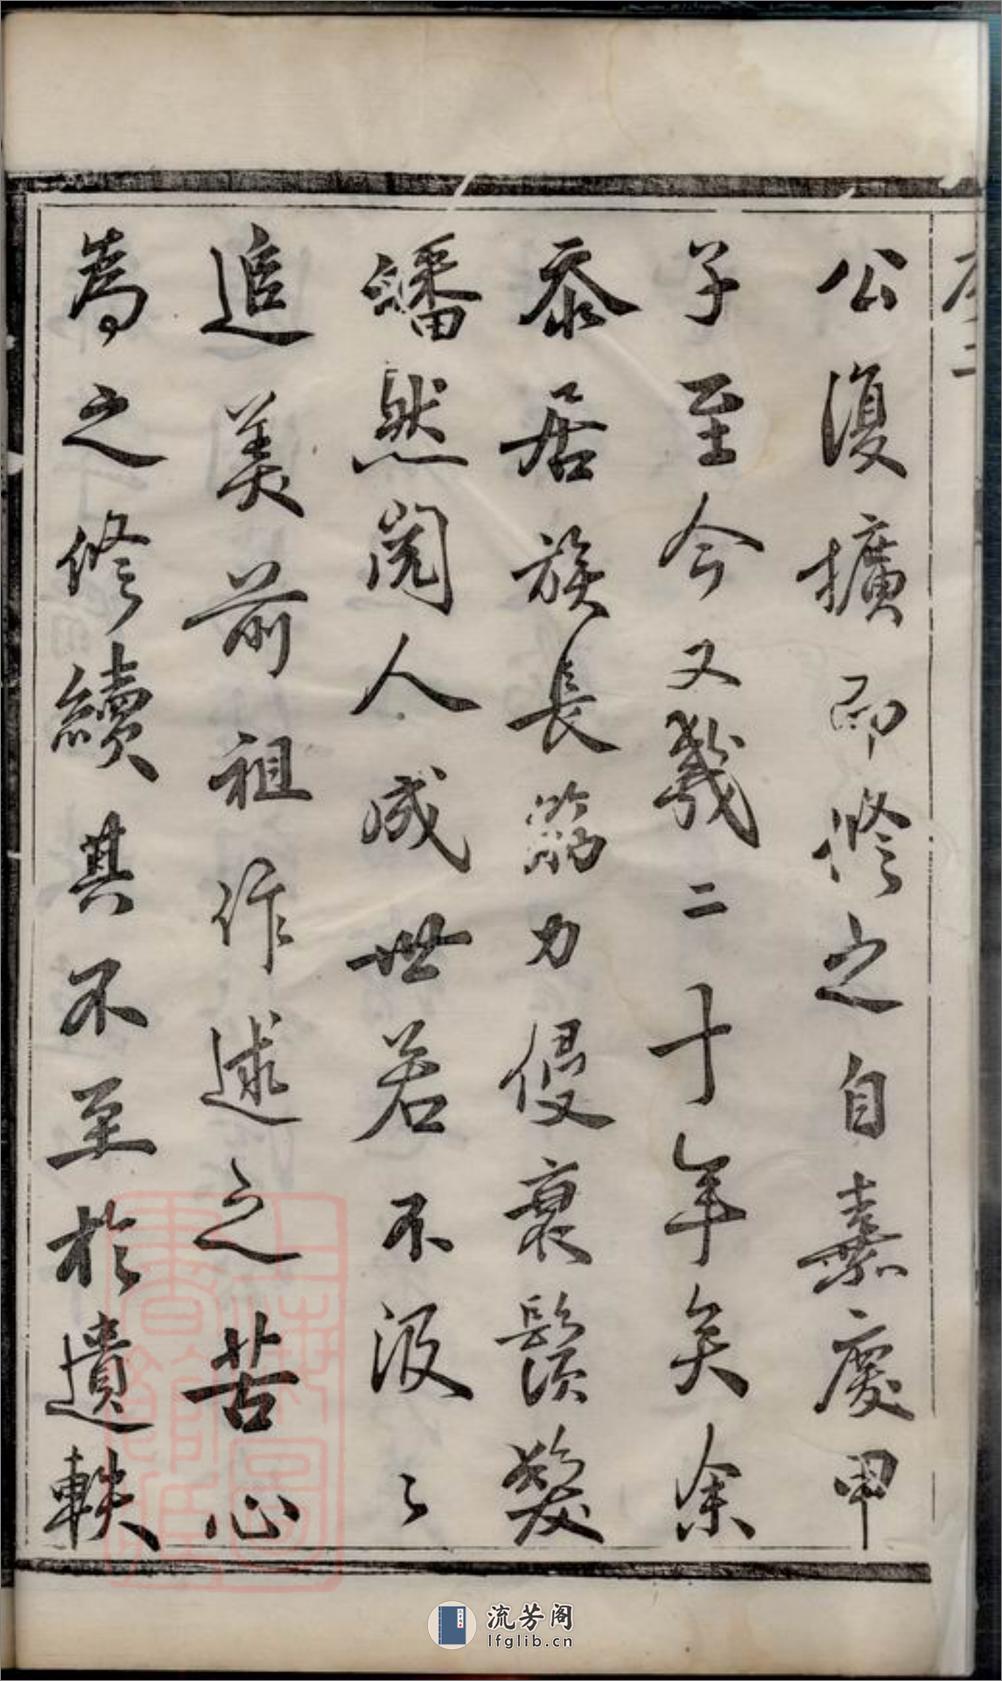 序二
公復擴而修之自嘉慶甲
子至今又幾二十年矣余
忝居族長筋力侵衰鬚髮
皤然閲人成世若不汲〻
追美前祖作述之苦心
為之修續其不至於遺軼
上海圖書館藏
流芳阁
lfglib.cn